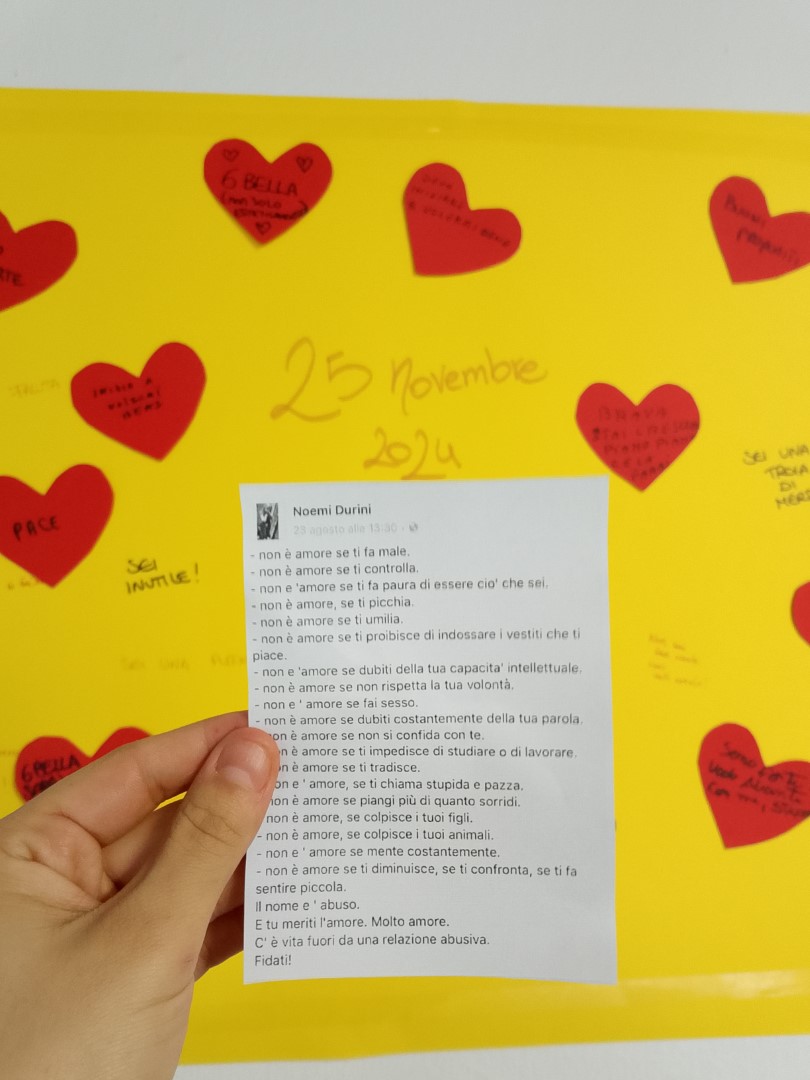 6 BELLA
(NON SOLO
ESTETICAMENTE)
A VOLERSI BENE
BUONI
PROPOSITI
25 novembre
2024
INIZIA A
VOLERTI
BENE
BRAVA
PIANO PIANO
SEI UNA
TROIA
DI
PACE
SEI
INUTILE!
6 BELLA
Noemi Durini
23 agosto alle 13:30 ·
- non è amore se ti fa male.
- non è amore se ti controlla.
- non e 'amore se ti fa paura di essere cio' che sei.
- non è amore, se ti picchia.
- non è amore se ti umilia.
- non è amore se ti proibisce di indossare i vestiti che ti
piace.
- non e 'amore se dubiti della tua capacita' intellettuale.
- non è amore se non rispetta la tua volontà.
- non e ' amore se fai sesso.
- non è amore se dubiti costantemente della tua parola.
non è amore se non si confida con te.
non è amore se ti impedisce di studiare o di lavorare.
non è amore se ti tradisce.
non e ' amore, se ti chiama stupida e pazza.
non è amore se piangi più di quanto sorridi.
non è amore, se colpisce i tuoi figli.
- non è amore, se colpisce i tuoi animali.
- non e ' amore se mente costantemente.
- non è amore se ti diminuisce, se ti confronta, se ti fa
sentire piccola.
Il nome e ' abuso.
E tu meriti l'amore. Molto amore.
C' è vita fuori da una relazione abusiva.
Fidati!